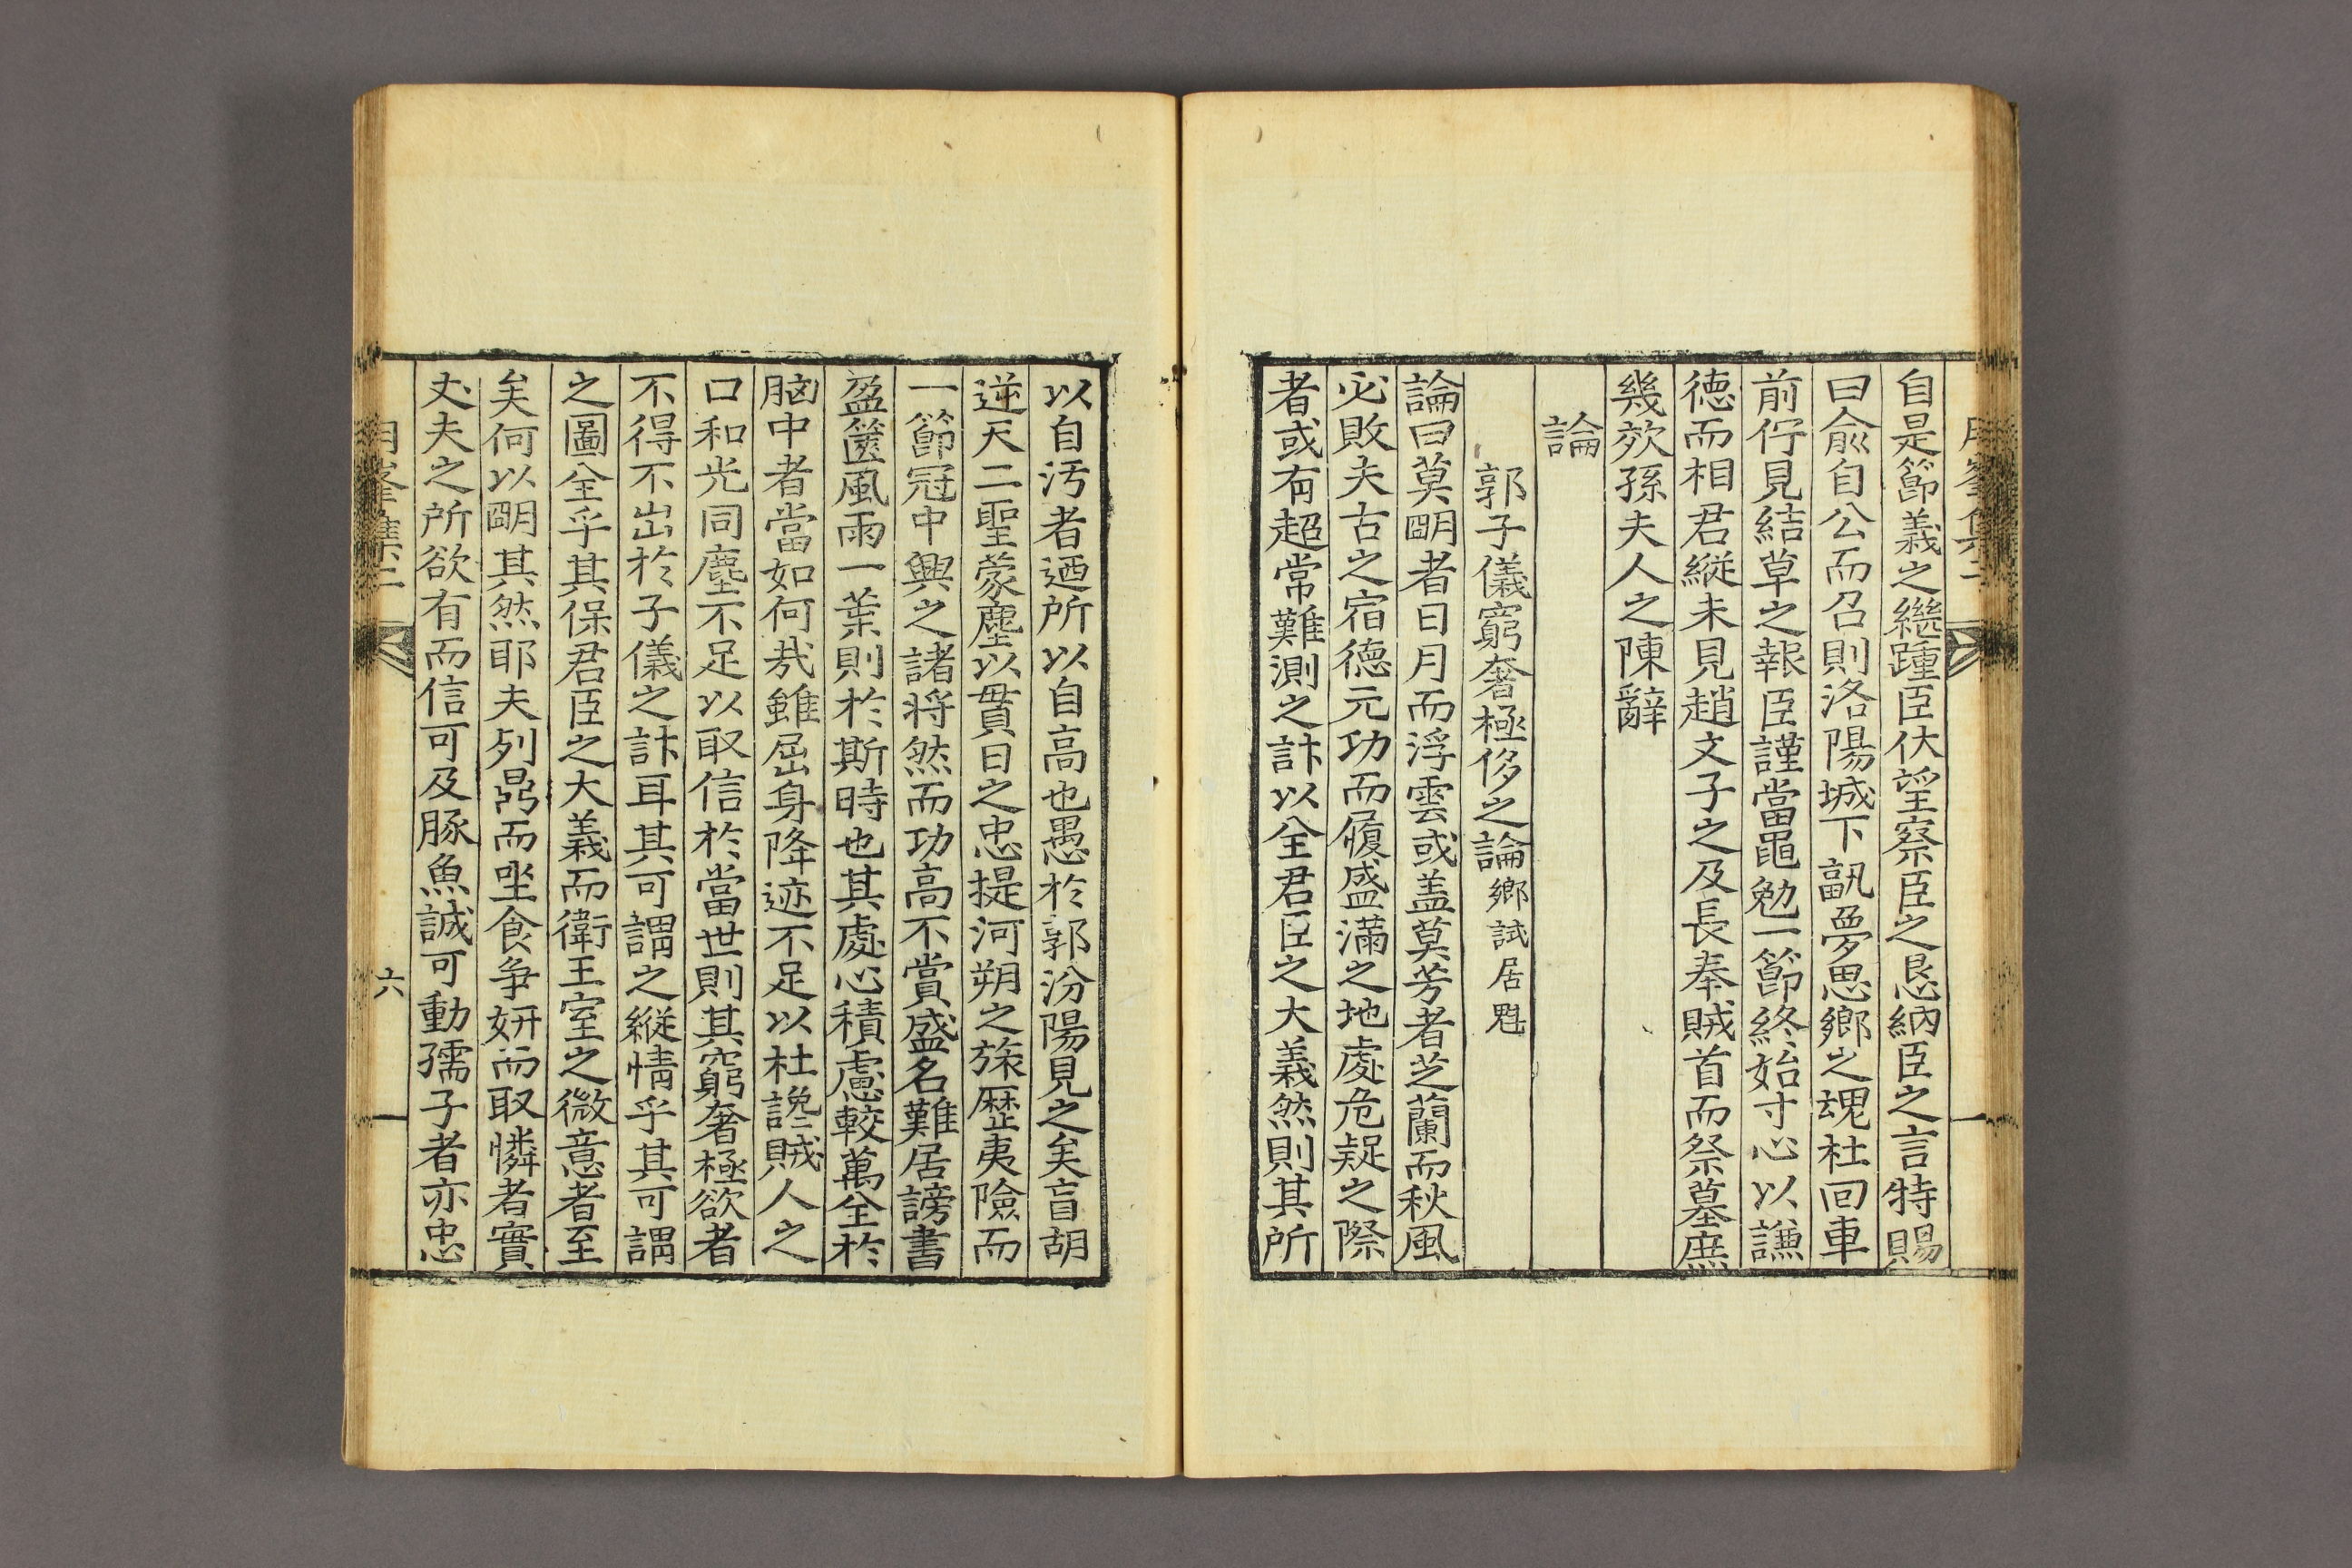 自是節義之繼踵臣伏望察臣之恳納臣之言特賜
曰兪自公而召則洛陽城下翫夢思鄉之魂杜回車
前佇見結草之報臣謹當黽勉一節終始寸心以謙
德而相君縱未見趙文子之及長奉賊首而祭墓庶
幾效孫夫人之陳辭
論
郭子儀窮奢極侈之論鄉試居魁
論曰莫明者日月而浮雲或盖莫芳者芝蘭而秋風
必敗夫古之宿德元功而履盛滿之地處危疑之際
者或有超常難測之計以全君臣之大義然則其所
以自汚者迺所以自高也愚於郭汾陽見之矣盲胡
逆天二聖蒙塵以貫日之忠提河朔之旅歷夷險而
一節冠中興之諸將然而功高不賞盛名難居謗書
盈篋風雨一葉則於斯時也其處心積慮較萬全於
脑中者當如何㢤雖屈身降迹不足以杜讒賊人之
口和光同塵不足以取信於當世則其窮奢極欲者
不得不出於子儀之計耳其可謂之縱情乎其可謂
之圖全乎其保君臣之大義而衛王室之微意者至
矣何以明其然耶夫列鼎而坐食爭妍而取憐者實
丈夫之所欲有而信可及豚魚誠可動孺子者亦忠
六